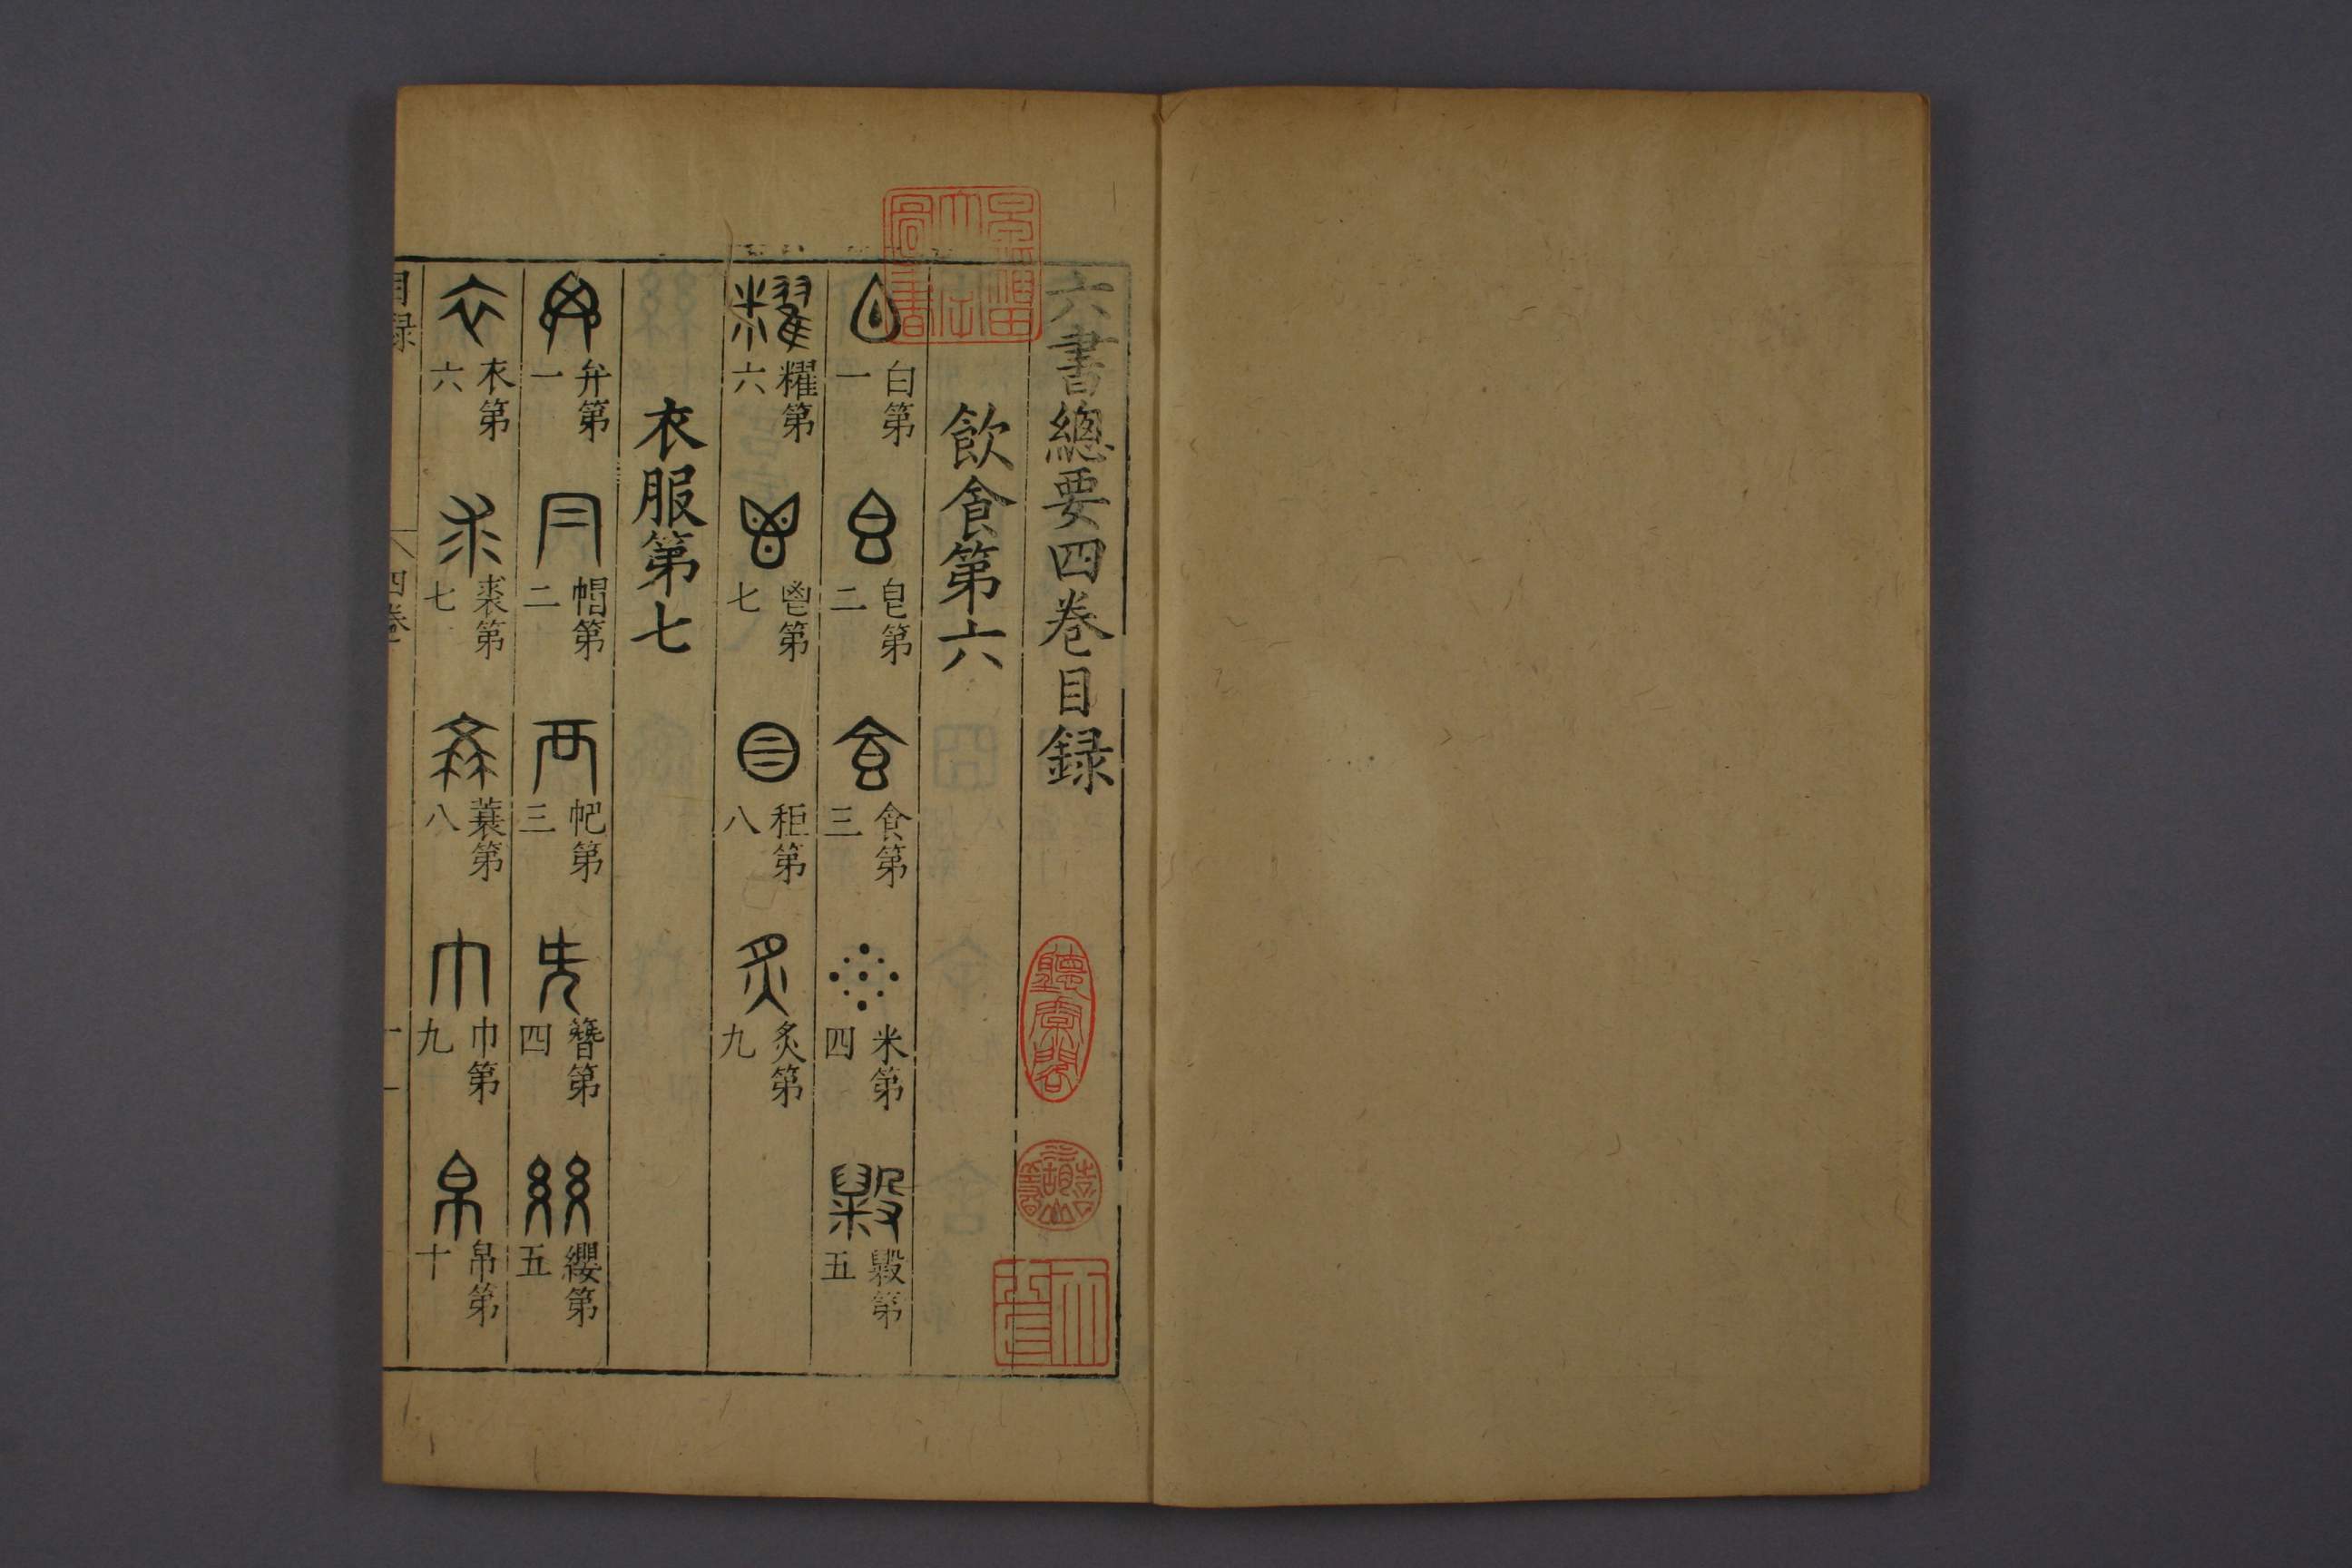 六書總要四卷目録
飲食第六
白第一 皀第二 食第三 米第四 毇第五
糶第六 鬯第七 秬第八 炙第九
衣服第七
弁第一 帽第二 帊第三 簪第四 纓第五
衣第六 裘第七 蓑第八 巾第九 帛第十
目録 四卷 一